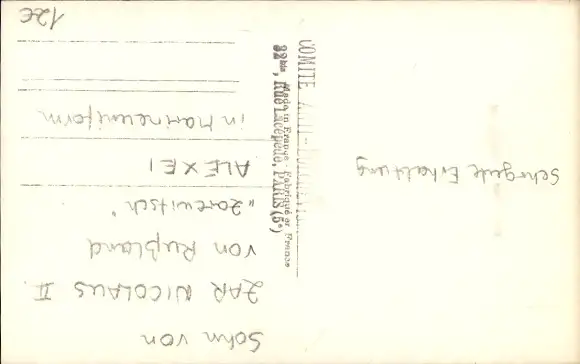 Sohn von
ZAR NICOLAUS II.
von Rußland
"Zarewitsch"
ALEXEI
in Marineuniform
12€
Sehr gute Erhaltung
COMITE
32bis, Rue Lacépède, PARIS (5e)
Made in France - Fabriqué en France